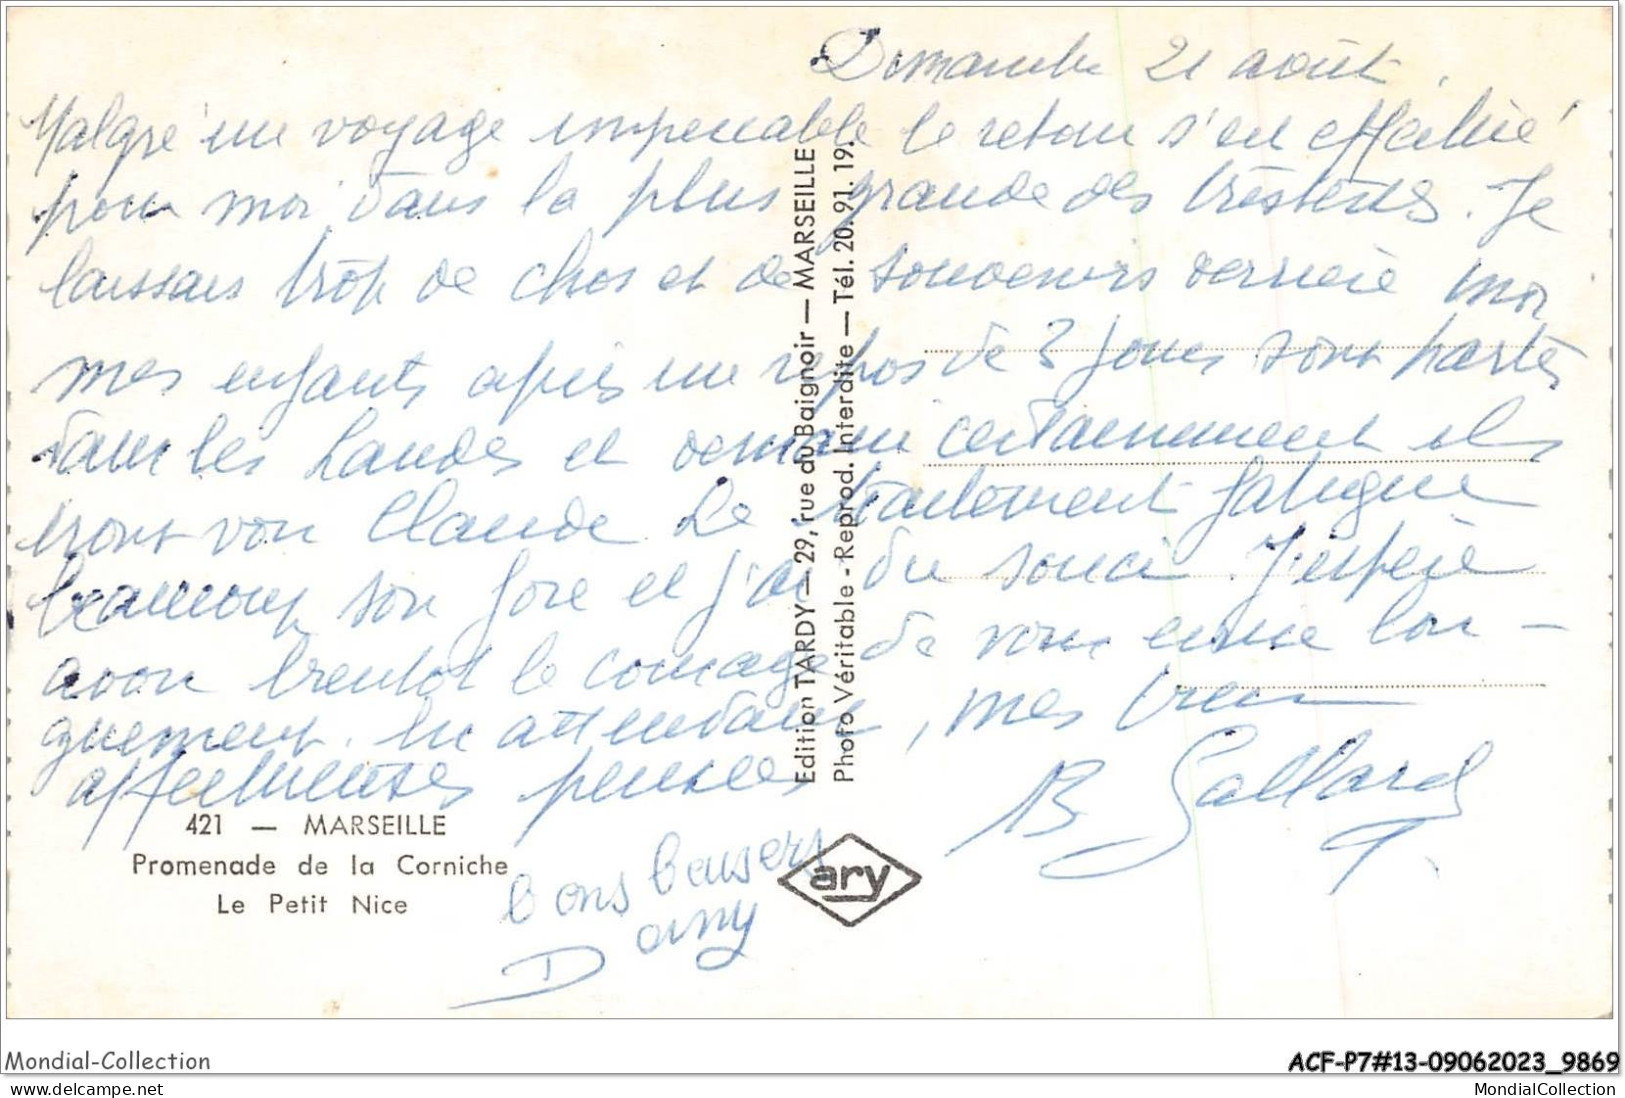 Dimanche 21 août.
Malgré un voyage impeccable le retour s'en effectué
pour moi dans la plus grande des tristesses. Je
laissais trop de choses et de souvenirs derrière moi
mes enfants après un repos de 3 jours sont partis
dans les Landes et demain certainement ils
iront voir Claude. Le traitement fatigue
beaucoup son foie et j'ai du souci. J'espère
avoir bientôt le courage de vous écrire lon-
guement. En attendant, mes bien
affectueuses pensées
B Gallard
bons baisers
Dany
421 — MARSEILLE
Promenade de la Corniche
Le Petit Nice
Edition TARDY — 29, rue du Baignoir — MARSEILLE
Photo Véritable - Reprod. Interdite — Tél. 20.91.19.
ary
Mondial-Collection
ACF-P7#13-09062023_9869
www.delcampe.net
MondialCollection